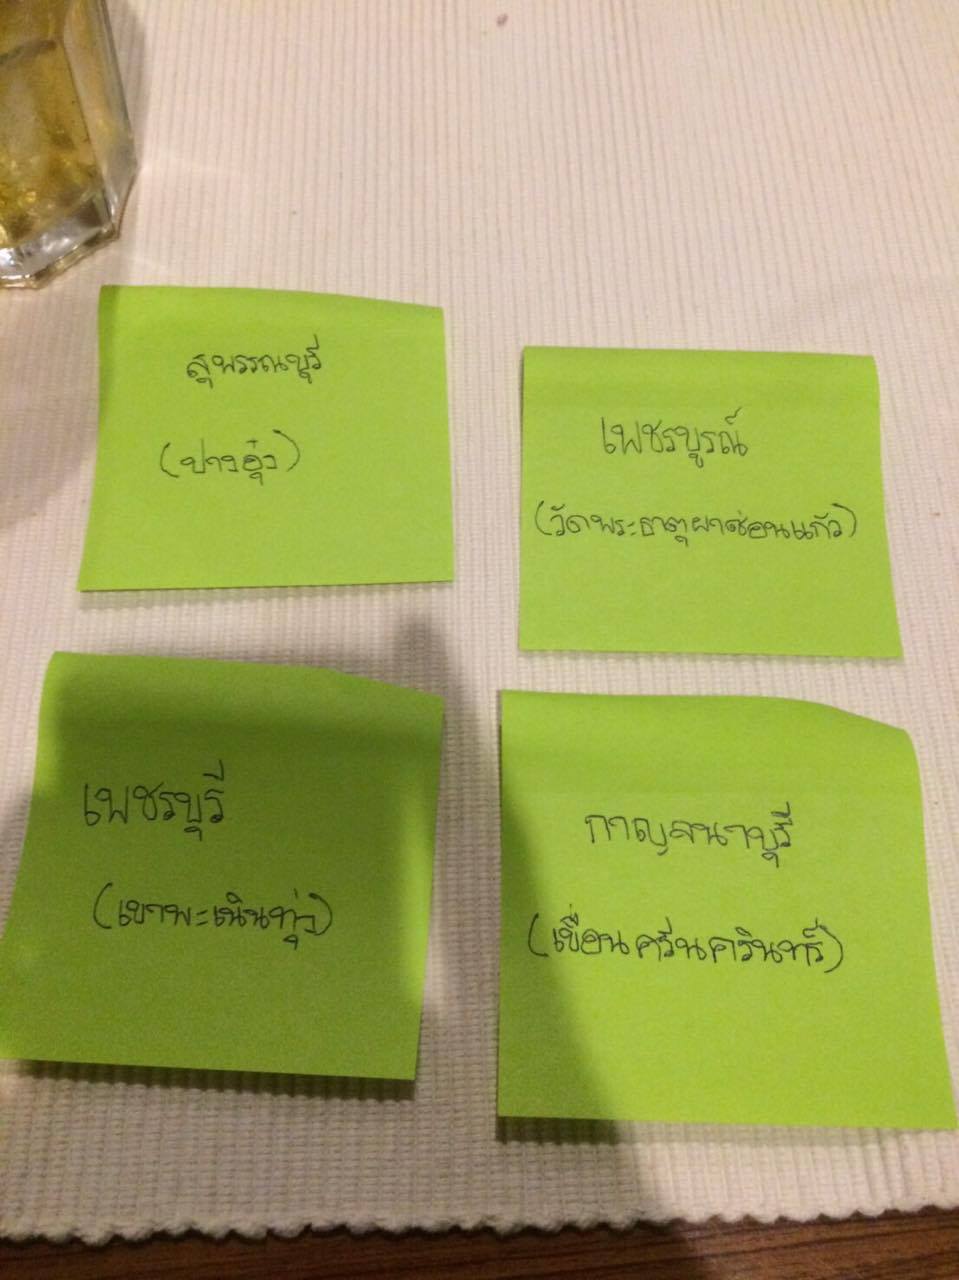 สุพรรณบุรี
(ปางอุ๋ง)
เพชรบูรณ์
(วัดพระธาตุผาซ่อนแก้ว)
เพชรบุรี
(เขาพะเนินทุ่ง)
กาญจนาบุรี
(เขื่อนศรีนครินทร์)